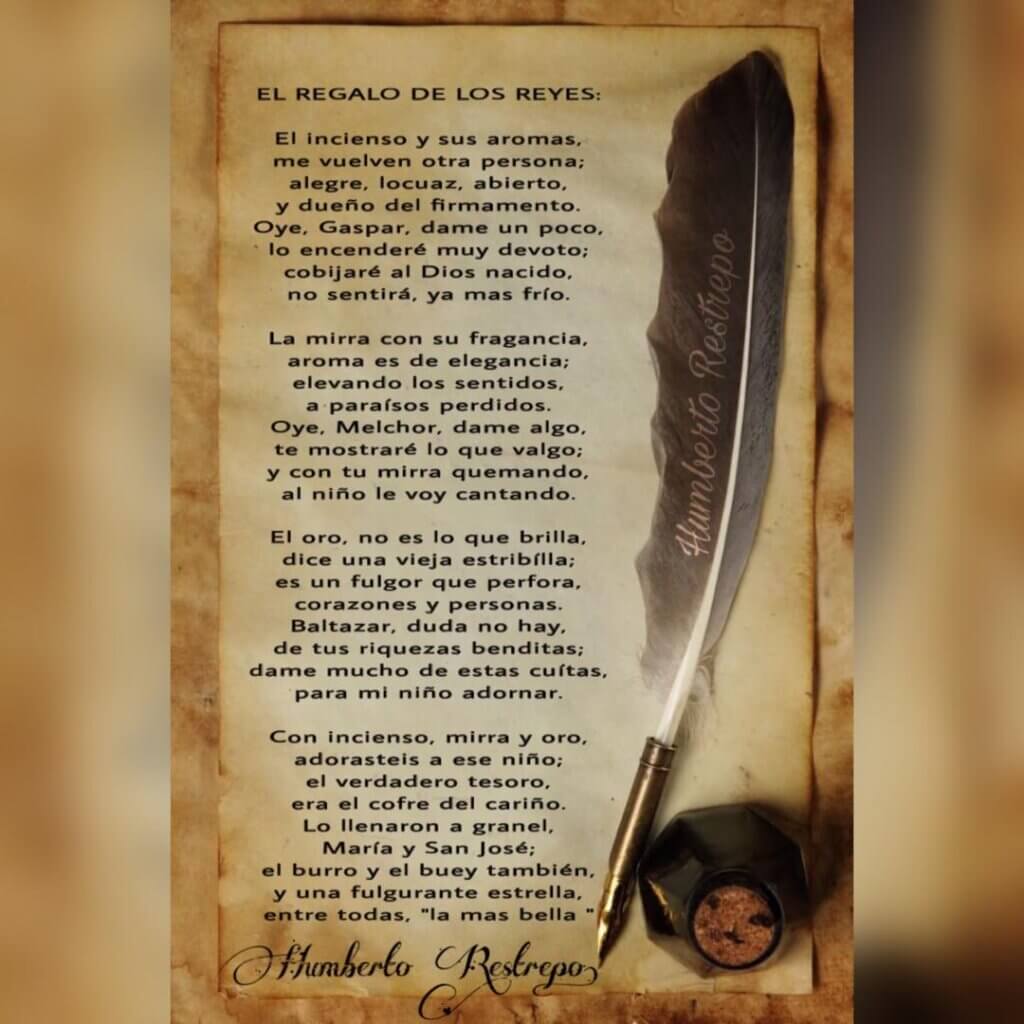 EL REGALO DE LOS REYES:
El incienso y sus aromas,
me vuelven otra persona;
alegre, locuaz, abierto,
y dueño del firmamento.
Oye, Gaspar, dame un poco,
lo encenderé muy devoto;
cobijaré al Dios nacido,
no sentirá, ya mas frío.
La mirra con su fragancia,
aroma es de elegancia;
elevando los sentidos,
a paraísos perdidos.
Oye, Melchor, dame algo,
te mostraré lo que valgo;
y con tu mirra quemando,
al niño le voy cantando.
El oro, no es lo que brilla,
dice una vieja estribílla;
es un fulgor que perfora,
corazones y personas.
Baltazar, duda no hay,
de tus riquezas benditas;
dame mucho de estas cuítas,
para mi niño adornar.
Con incienso, mirra y oro,
adorasteis a ese niño;
el verdadero tesoro,
era el cofre del cariño.
Lo llenaron a granel,
María y San José;
el burro y el buey también,
y una fulgurante estrella,
entre todas, "la mas bella "
Humberto Restrepo
Humberto Restrepo